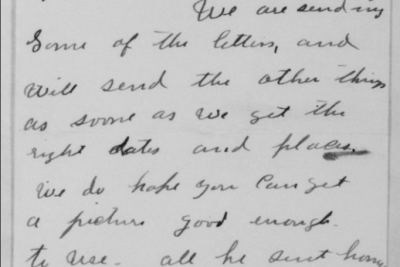 We are sending
Some of the letters, and
will send the other things
as soone as we get the
right dates and places.
We do hope you can get
a picture good enough.
to use. all he sent home